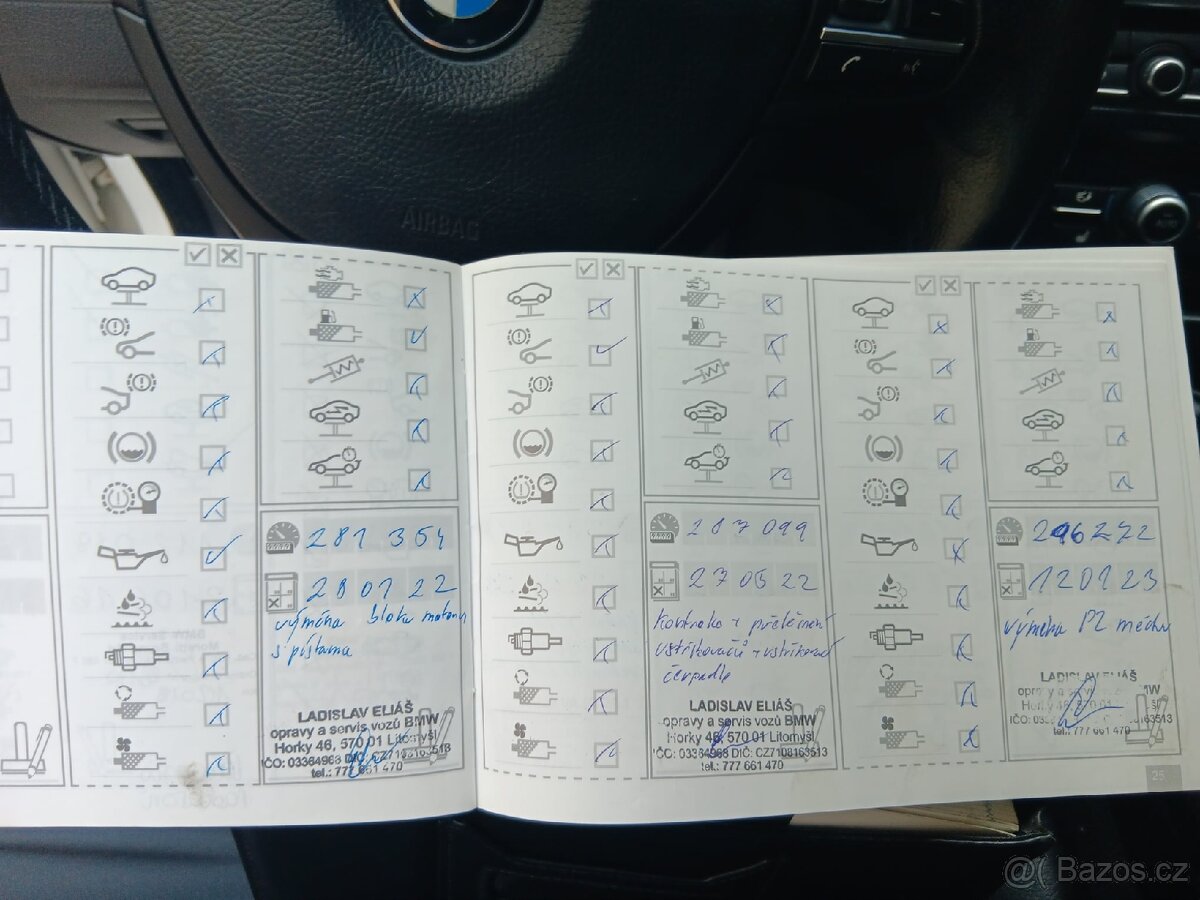 AIRBAG
281 354
28 01 22
výměna bloku motoru
s pístama
LADISLAV ELIÁŠ
opravy a servis vozů BMW
Horky 46, 570 01 Litomyšl
IČO: 03364963 DIČ: CZ7108163513
tel.: 777 661 470
287 099
27 05 22
kontrola +
vstřikovačů + vstřikovací
čerpadle
LADISLAV ELIÁŠ
opravy a servis vozů BMW
Horky 46, 570 01 Litomyšl
IČO: 03364963 DIČ: CZ7108163513
tel.: 777 661 470
296272
120123
výměna PZ měchu
LADISLAV ELIÁŠ
tel.: 777 661 470
25
Bazos.cz